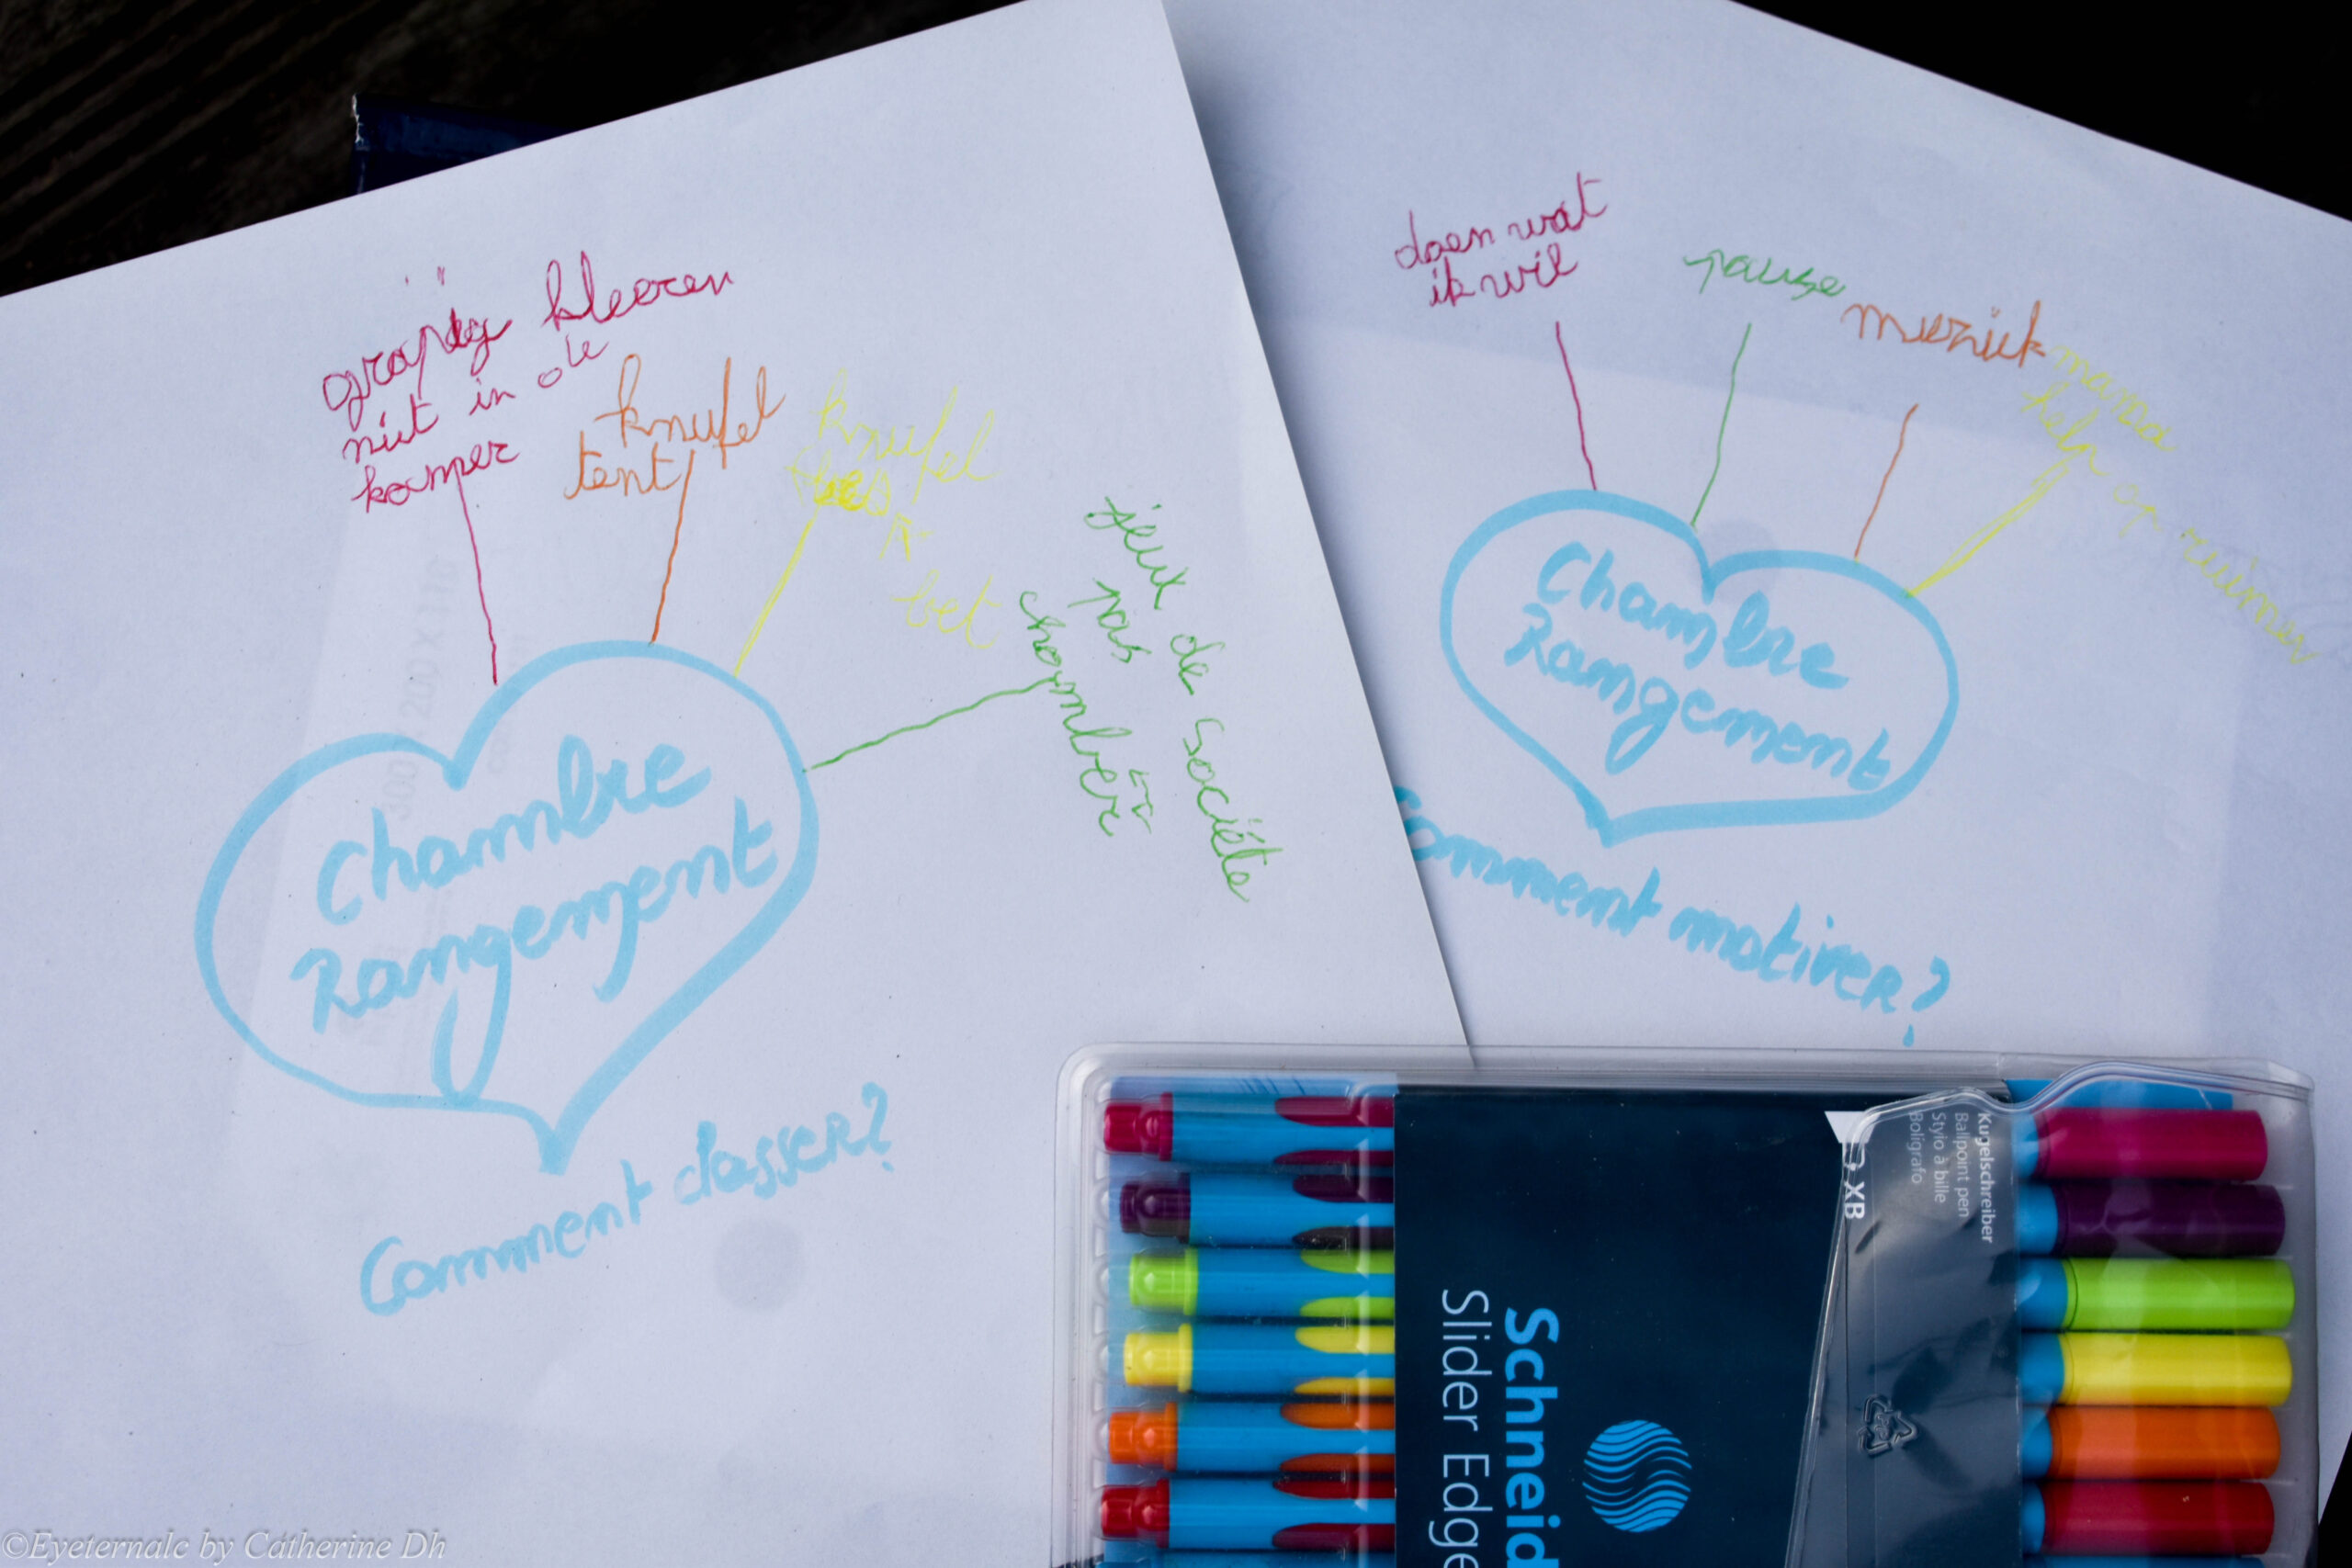 kleeren
niet in de
kamer
knufel
tent
knufel
bet
jeux de Société
pas en
chambre
Chambre
Rangement
Comment classer?
doen wat
ik wil
pauze
muziek
mama
help op ruimen
Chambre
Rangement
Comment motiver?
Schneid
Slider Edge
XB
Kugelschreiber
Ballpoint pen
Stylo à bille
Bolígrafo
©Eyeternalc by Catherine Dh